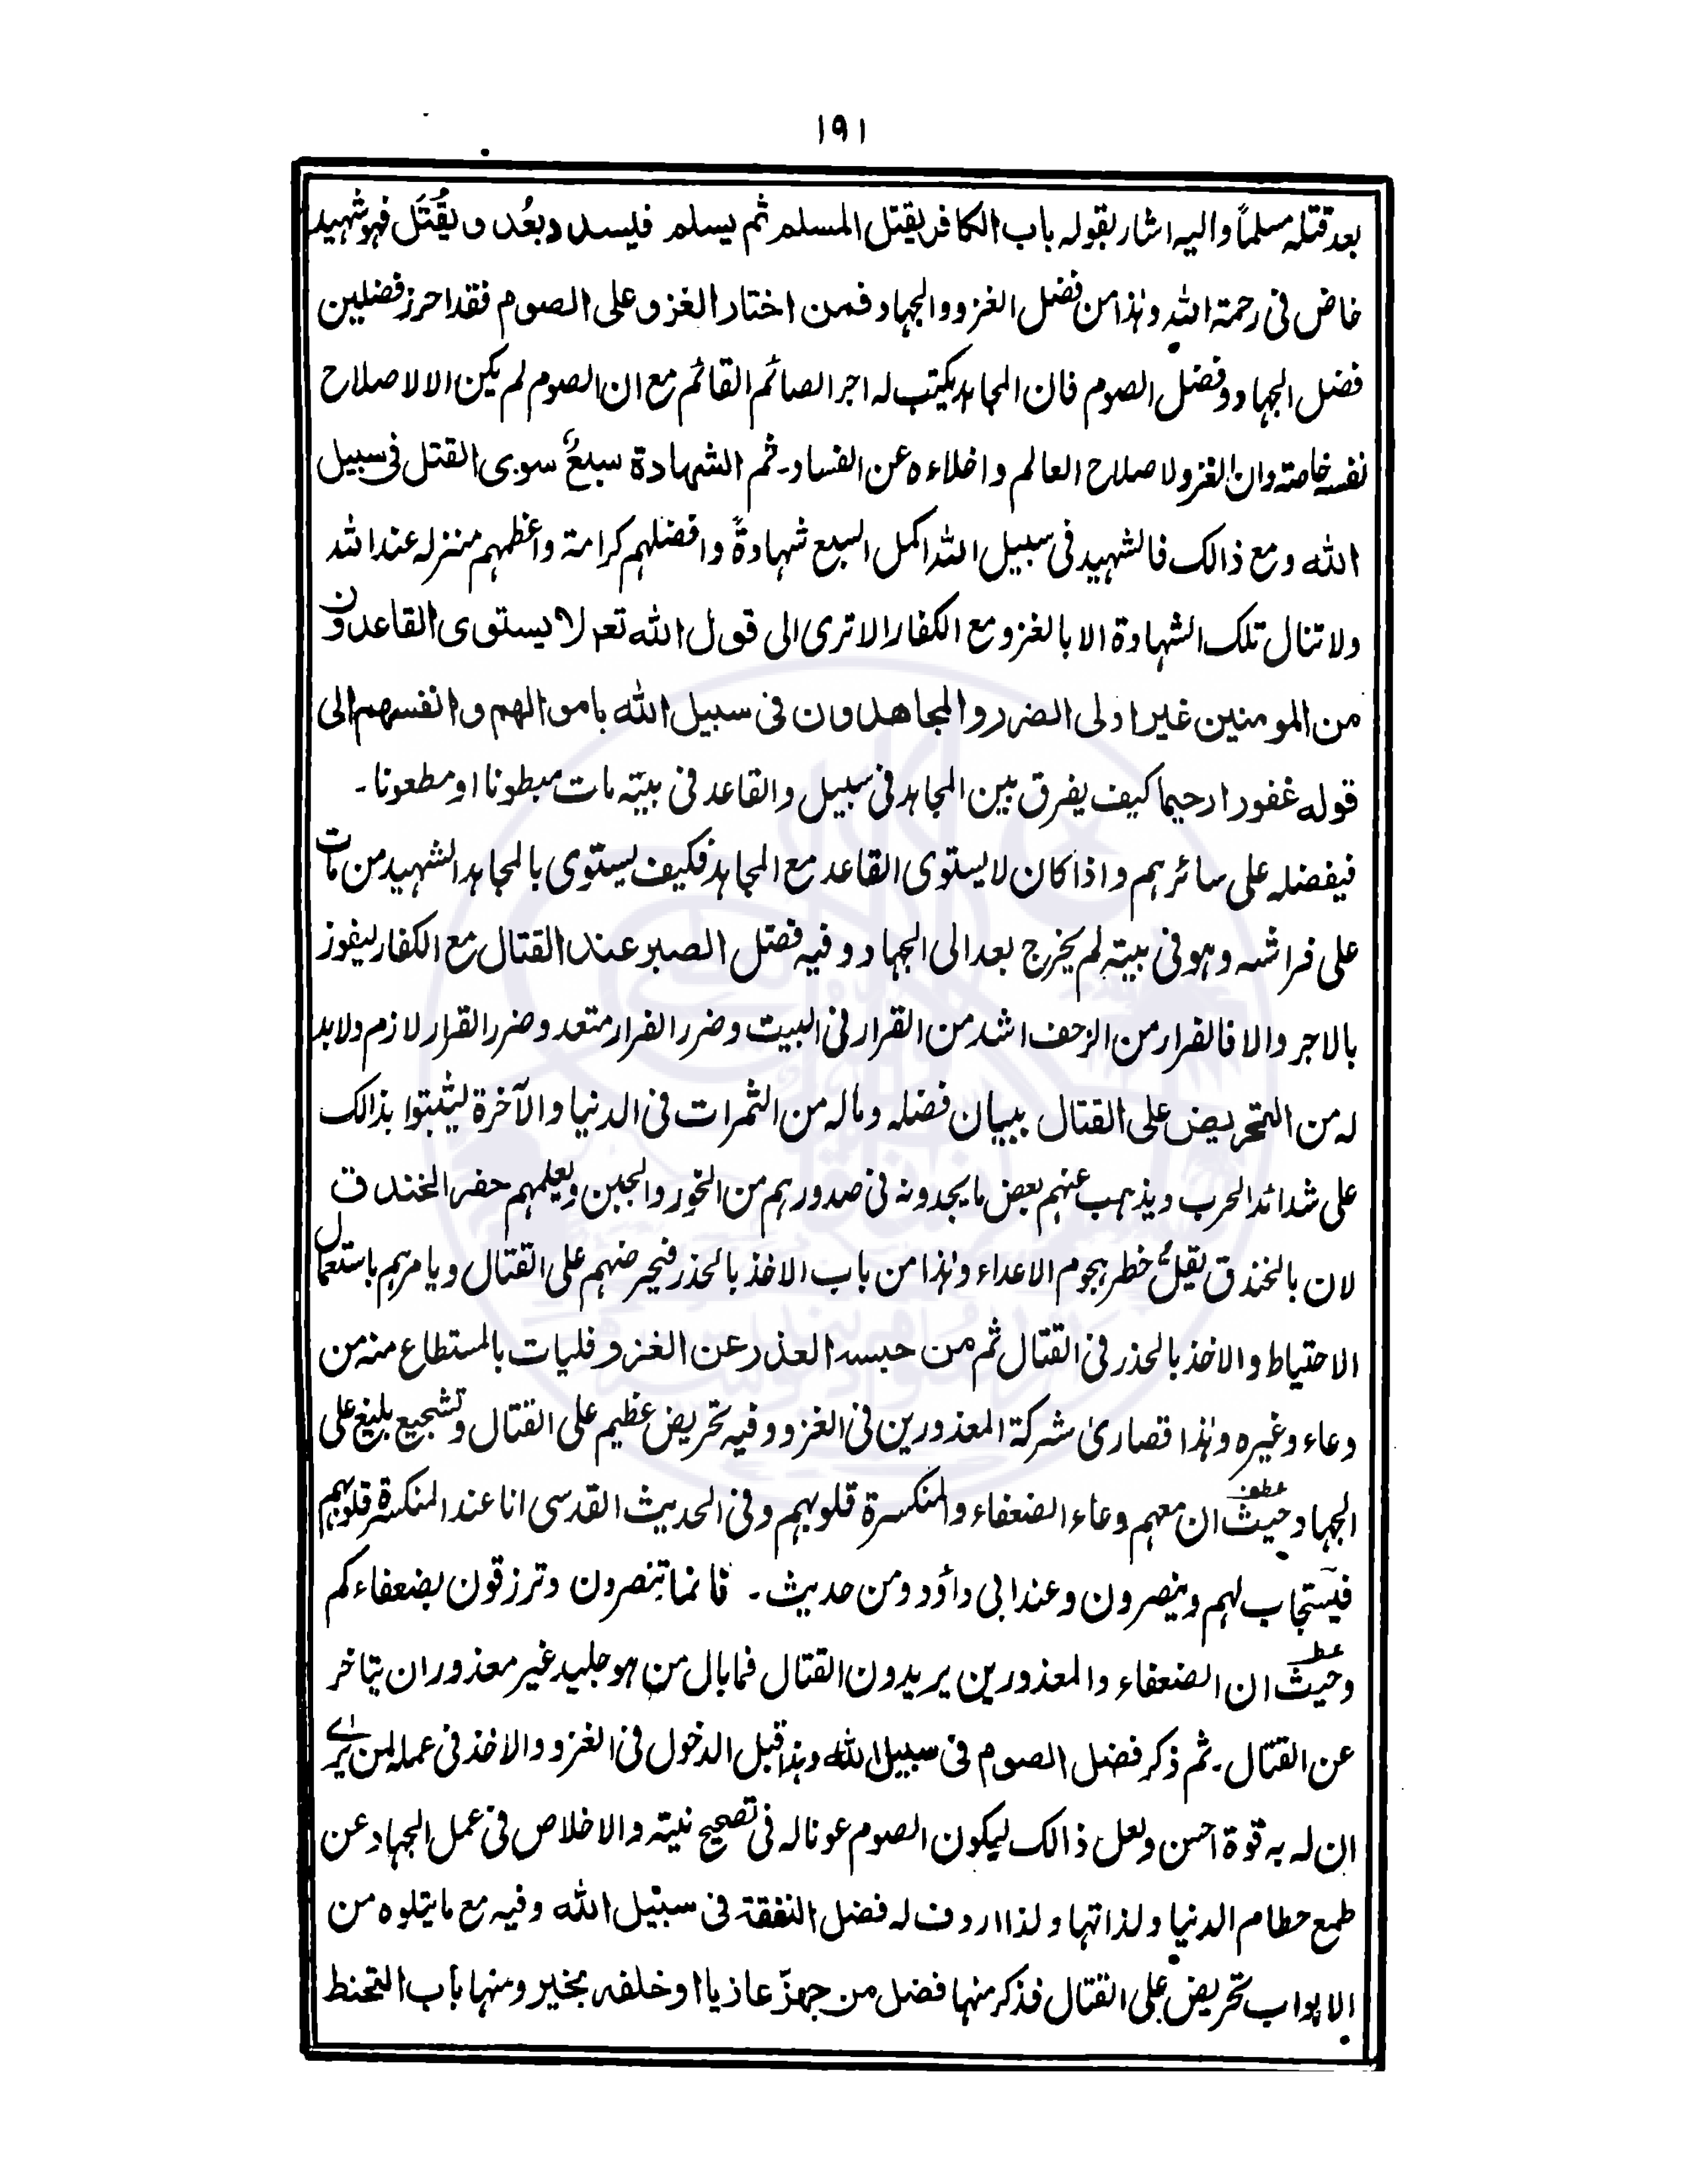 ١٩١
بعد قتله مسلماً واليه اشار بقوله باب الكافر يقتل المسلم ثم يسلم فيسدد بعُد و يقُتَل فهو شهيد
خاض فى رحمة الله وہذا من فضل الغزو والجہاد فمن اختار الغزو على الصوم فقد احرز فضلين
فضل الجہاد و فضل الصوم فان المجاہد يكتب له اجر الصائم القائم مع ان الصوم لم يكن الا لاصلاح
نفسه خاصة وان الغزو لاصلاح العالم واخلاءه عن الفساد۔ ثم الشہادة سبعٌ سوى القتل فى سبيل
الله ومع ذالك فالشہيد فى سبيل الله اكمل السبع شہادةً وافضلہم كرامة واعظمہم منزله عند الله
ولا تنال تلك الشہادة الا بالغزو مع الكفار الا ترى الى قول الله تعہ لا يستوى القاعدون
من المومنين غير اولى الضرر والمجاهدون فى سبيل الله باموالهم وانفسهم الى
قوله غفورا رحيما كيف يفرق بين المجاہد فى سبيل والقاعد فى بيته مات مبطونا او مطعونا۔
فيفضله على سائرہم واذا كان لا يستوى القاعد مع المجاہد فكيف يستوى بالمجاہد الشہيد من مات
على فراشه وہو فى بيته لم يخرج بعد الى الجہاد و فيه فضل الصبر عند القتال مع الكفار ليفوز
بالاجر والا فالفرار من الزحف اشد من القرار فى البيت وضرر الفرار متعد وضرر القرار لازم ولا بد
له من التحريض على القتال ببيان فضله وماله من الثمرات فى الدنيا والآخرة ليثبتوا بذالك
على شدائد الحرب ويذہب عنہم بعض ما يجدونه فى صدورہم من الخور والجبن ويعلمہم حفر الخندق
لان بالخندق يقلُّ خطر ہجوم الاعداء وہذا من باب الاخذ بالحذر فيحرضہم على القتال ويامرہم باستعمال
الاحتياط والاخذ بالحذر فى القتال ثم من حبسه العذر عن الغزو فليات بالمستطاع منه من
دعاء وغيره وہذا قصارىٰ شركة المعذورين فى الغزو وفيه تحريض عظيم على القتال وتشجيع بليغ على
الجہاد حيث ان معہم دعاء الضعفاء والمنكسرة قلوبہم وفى الحديث القدسى انا عند المنكسرة قلوبہم
فيستجاب لہم وينصرون وعند ابى داؤد ومن حديث۔ فانما تنصرون وترزقون بضعفاءكم
وحيث ان الضعفاء والمعذورين يريدون القتال فما بال من ہو جليد غير معذور ان يتاخر
عن القتال۔ ثم ذكر فضل الصوم فى سبيل الله وہذا قبل الدخول فى الغزو والاخذ فى عمله لمن يرىٰ
ان له به قوة احسن ولعل ذالك ليكون الصوم عونا له فى تصحيح نيته والاخلاص فى عمل الجہاد عن
طمع حطام الدنيا ولذاتہا ولذا اردف له فضل النفقة فى سبيل الله وفيه مع ما يتلوه من
الابواب تحريض على القتال فذكر منہا فضل من جہزّ غازيا او خلفه بخير ومنہا باب التحنط